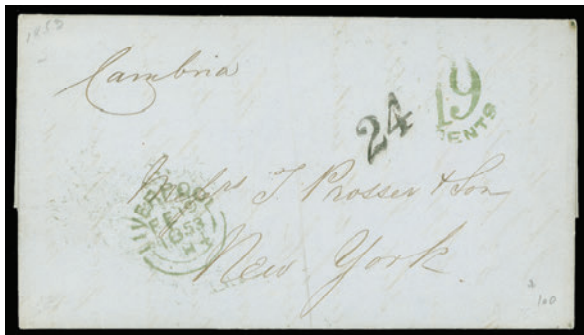 1853
Cambria
24
19
CENTS
LIVERPOOL
FE 19
1853
T Prosser & Son
New York
100